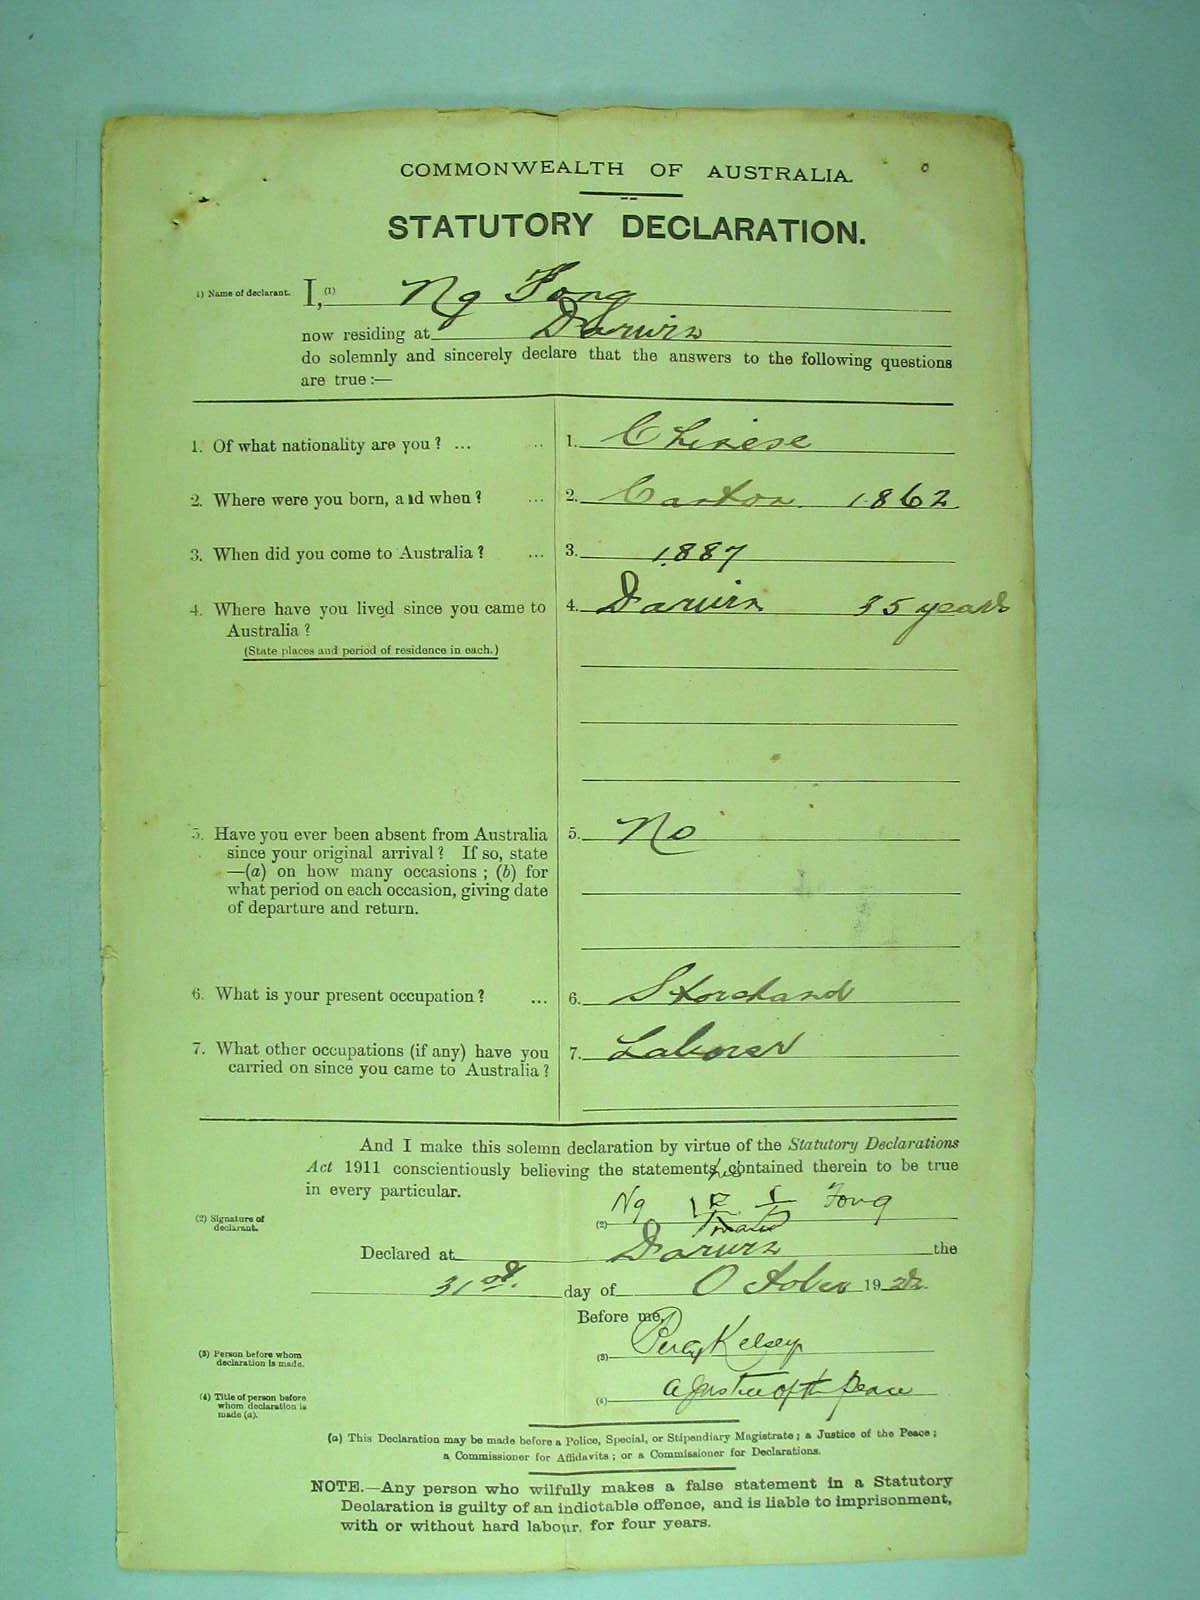 COMMONWEALTH OF AUSTRALIA.
STATUTORY DECLARATION.
1) Name of declarant. I, (1) Ng Fong
now residing at Darwin
do solemnly and sincerely declare that the answers to the following questions
are true :—
1. Of what nationality are you ? ... .. 1. Chinese
2. Where were you born, and when ? ... 2. Canton. 1862
3. When did you come to Australia ? ... 3. 1887
4. Where have you lived since you came to 4. Darwin 35 years
Australia ?
(State places and period of residence in each.)
5. Have you ever been absent from Australia 5. No
since your original arrival ? If so, state
—(a) on how many occasions ; (b) for
what period on each occasion, giving date
of departure and return.
6. What is your present occupation ? ... 6. Storehand
7. What other occupations (if any) have you 7. Laborer
carried on since you came to Australia ?
And I make this solemn declaration by virtue of the Statutory Declarations
Act 1911 conscientiously believing the statements contained therein to be true
in every particular.
his
(2) Signature of declarant. (2) Ng Fong
mark
Declared at Darwin the
31st. day of October 1922.
Before me,
(3) Person before whom declaration is made. (3) Percy Kelsey
(4) Title of person before whom declaration is made (a). (4) a Justice of the Peace
(a) This Declaration may be made before a Police, Special, or Stipendiary Magistrate ; a Justice of the Peace ;
a Commissioner for Affidavits ; or a Commissioner for Declarations.
NOTE.—Any person who wilfully makes a false statement in a Statutory
Declaration is guilty of an indictable offence, and is liable to imprisonment,
with or without hard labour, for four years.